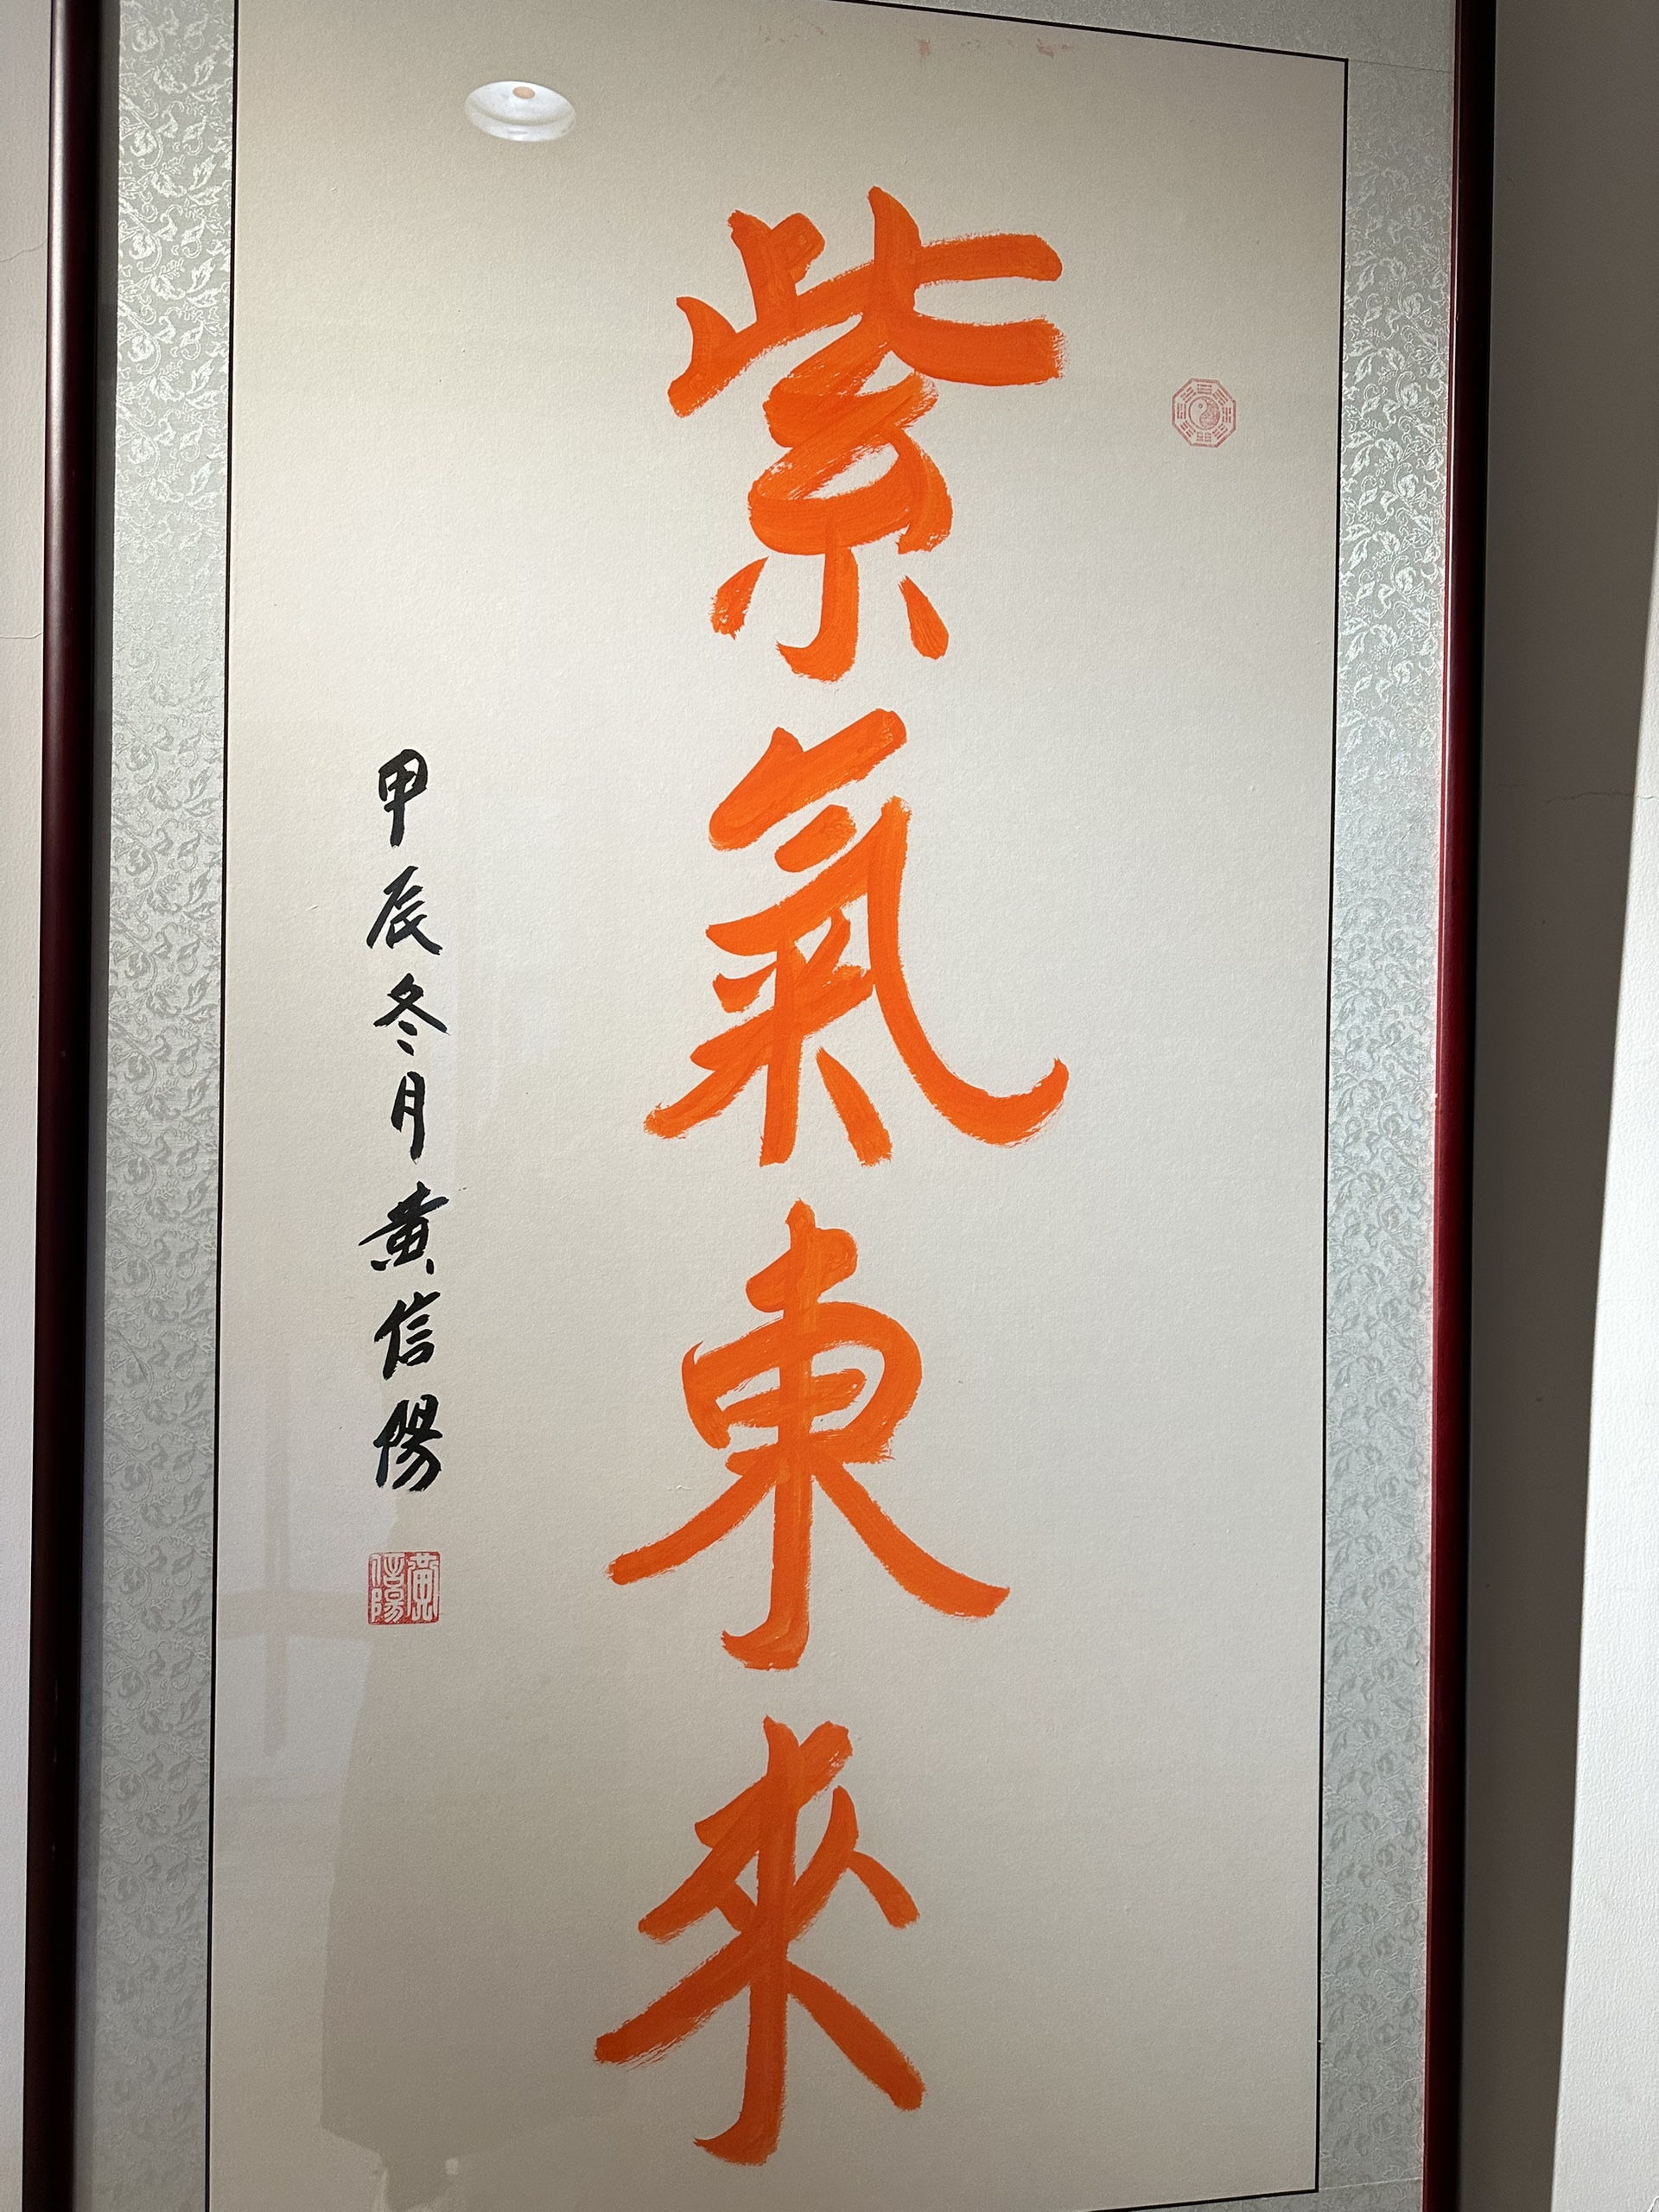 紫氣東來
甲辰冬月黄信陽
黄信陽